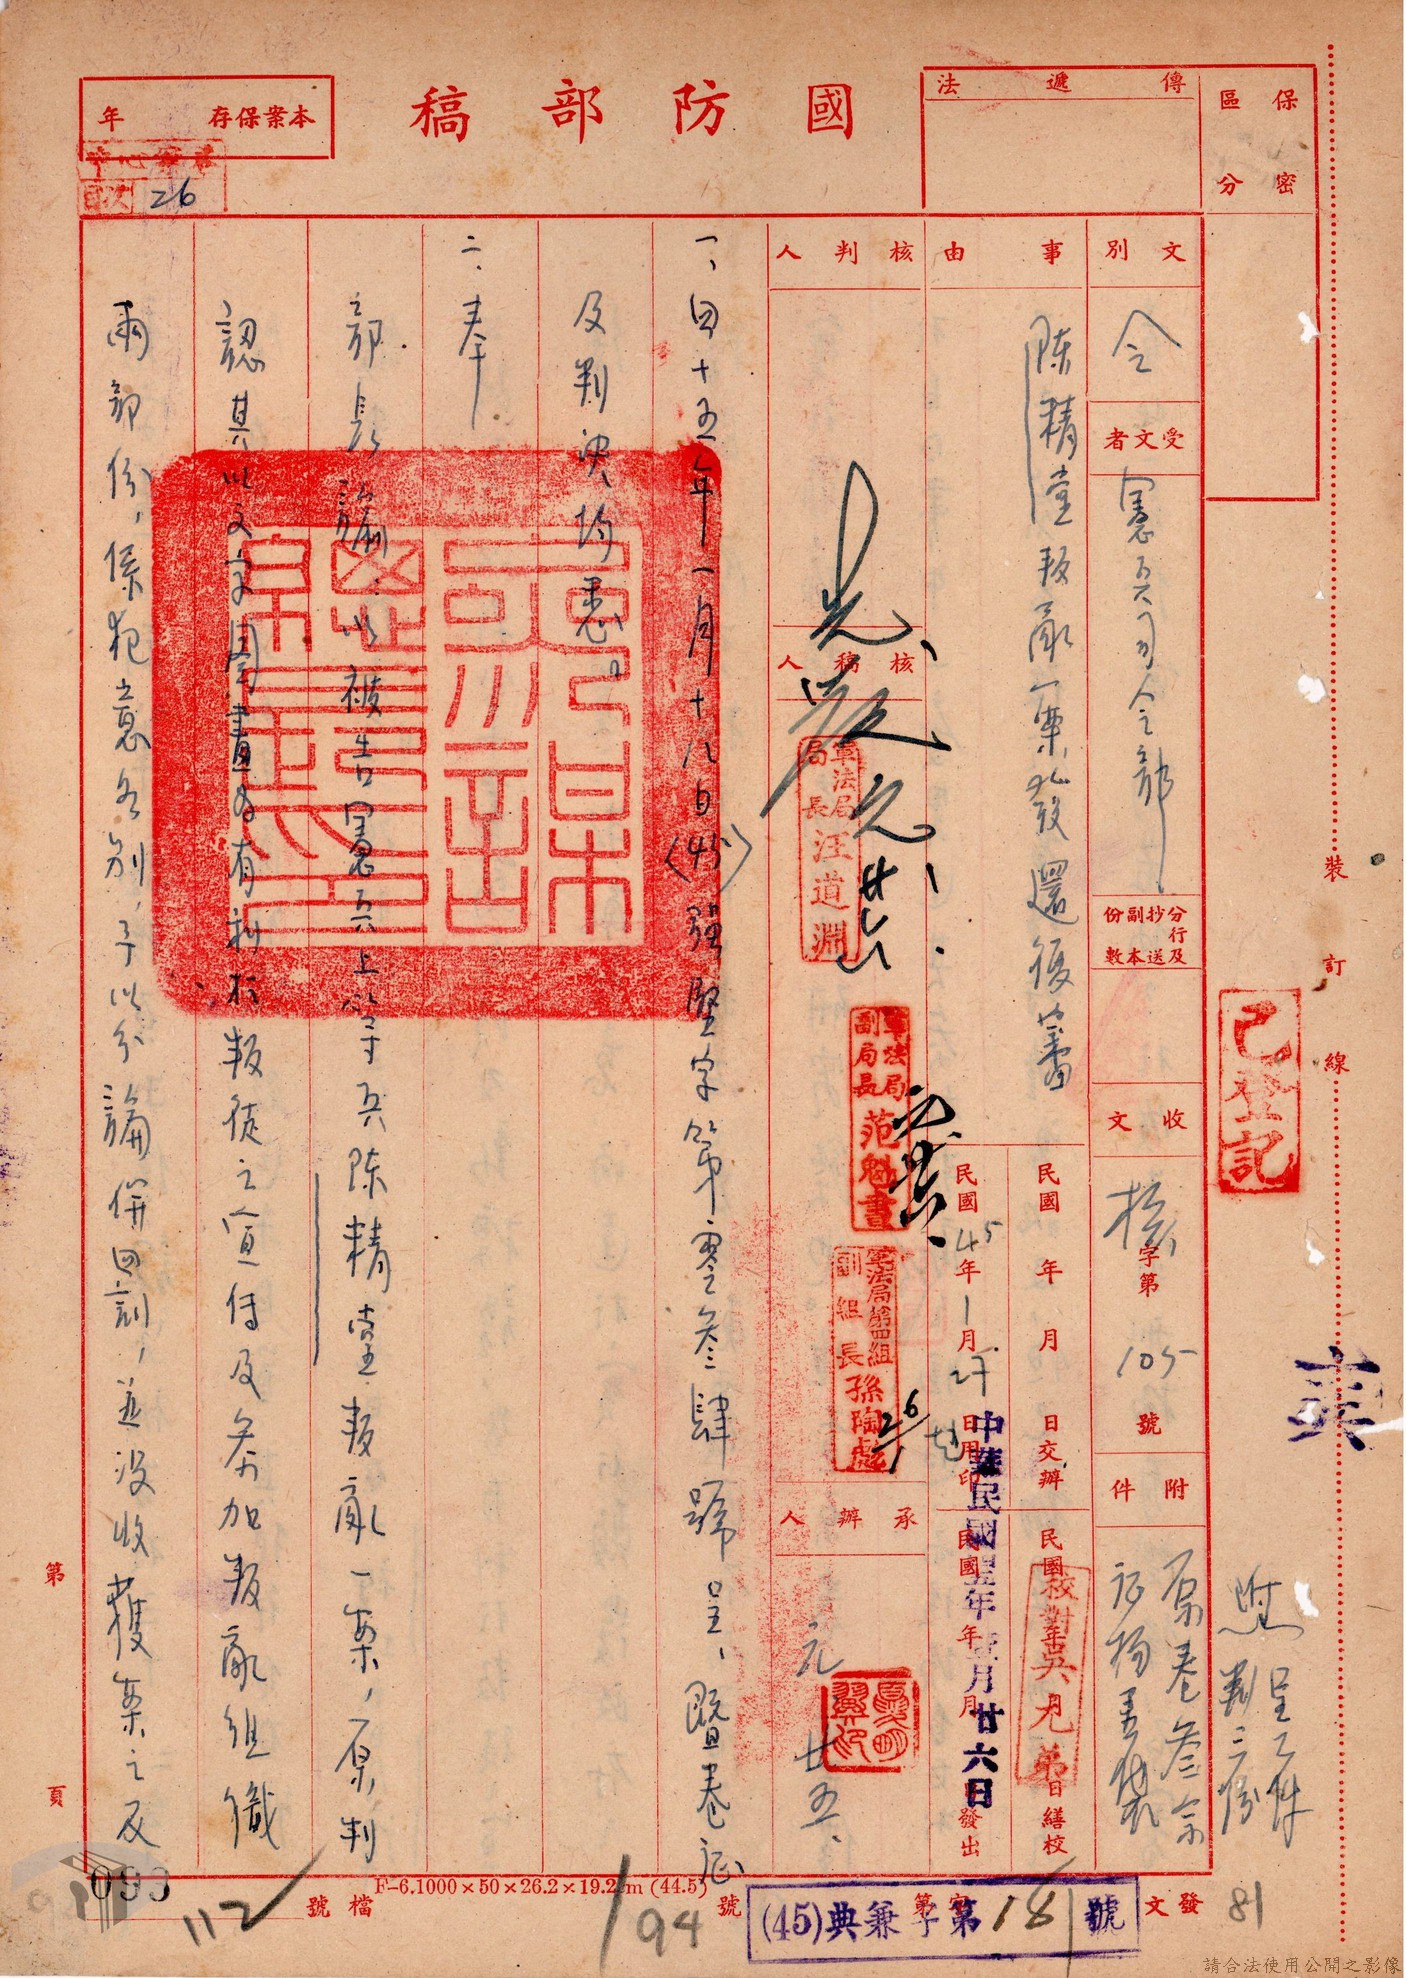 國防部稿
保密
區分
傳遞法
本案保存 年
目次 26
文別 令
受文者 憲兵司令部
分行及抄送副本份數
收文 核字第105號
附件 原卷叁宗
附呈乙件
判三份
事由 陳精堂叛亂一案發還復審
民國 年 月 日交辦
民國 年 月 日繕校
校對吳元弟
民國45年1月 日用印
民國 年 月 日發出
中華民國 五年壹月廿六日
核判人
核稿人
軍法局局長汪道淵
軍法局副局長范魁書
軍法局第四組副組長孫陶
26/1
承辦人
元 廿五、
已登記
一、四十五年一月十八日(45)強堅字第零叁肆號呈、暨卷証
及判決均悉。
二、奉
部長諭：以被告憲兵上等兵陳精堂叛亂一案，原判
認其以文字圖畫為有利於叛徒之宣传及参加叛亂組織
兩部份，係犯意各别，予以分論併罰，並没收獲案之反
裝訂線
第 頁
093
檔號
112
F-6.1000×50×26.2×19.2cm (44.5)
194
號
發文 (45)典兼字第181號
81
請合法使用公開之影像